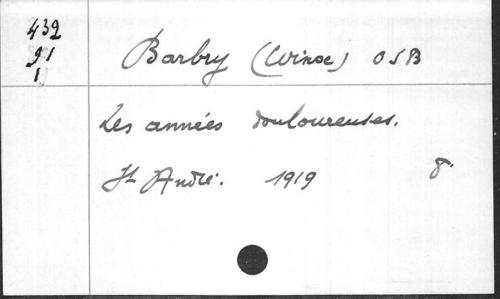 432
91
1
Barbry (Winoc) OSB
Les années douloureuses.
St André. 1919 8°